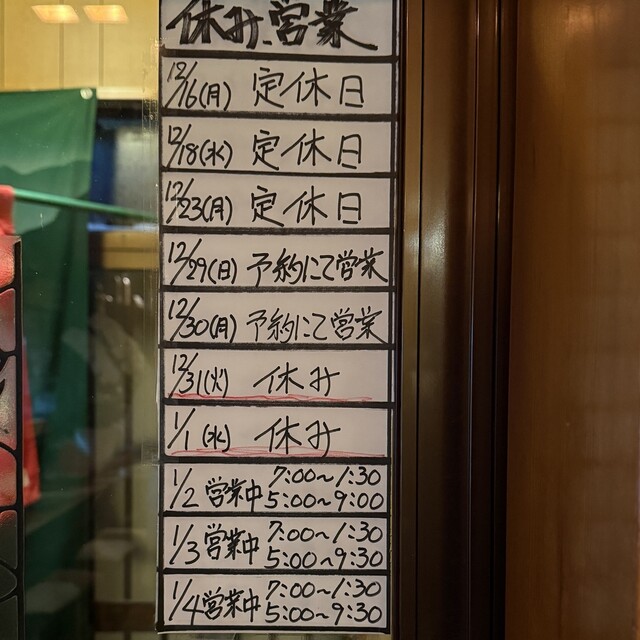 休み、営業
12/16(月) 定休日
12/18(水) 定休日
12/23(月) 定休日
12/29(日) 予約にて営業
12/30(月) 予約にて営業
12/31(火) 休み
1/1(水) 休み
1/2 営業中 7:00～1:30
5:00～9:00
1/3 営業中 7:00～1:30
5:00～9:30
1/4 営業中 7:00～1:30
5:00～9:30